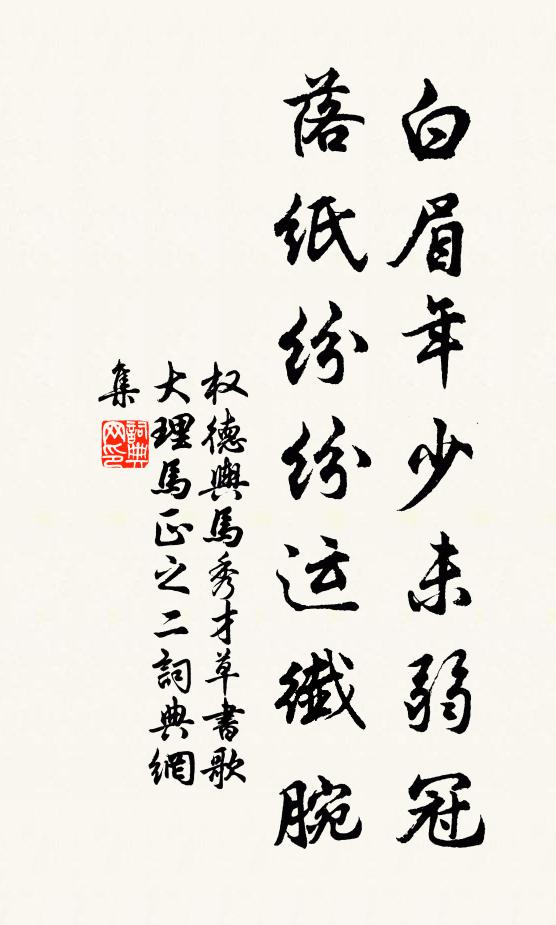 白眉年少未弱冠
落纸纷纷运纎腕
权德舆馬秀才草書歌
大理馬正之二詞典網
集
詞典网印